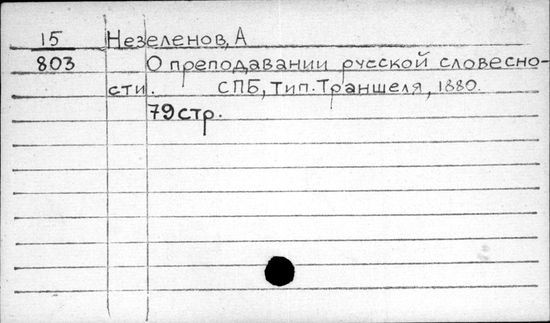 15 Незеленов, А
803 О преподавании русской словесно-
сти. СПБ, тип. Траншеля, 1880.
79 стр.